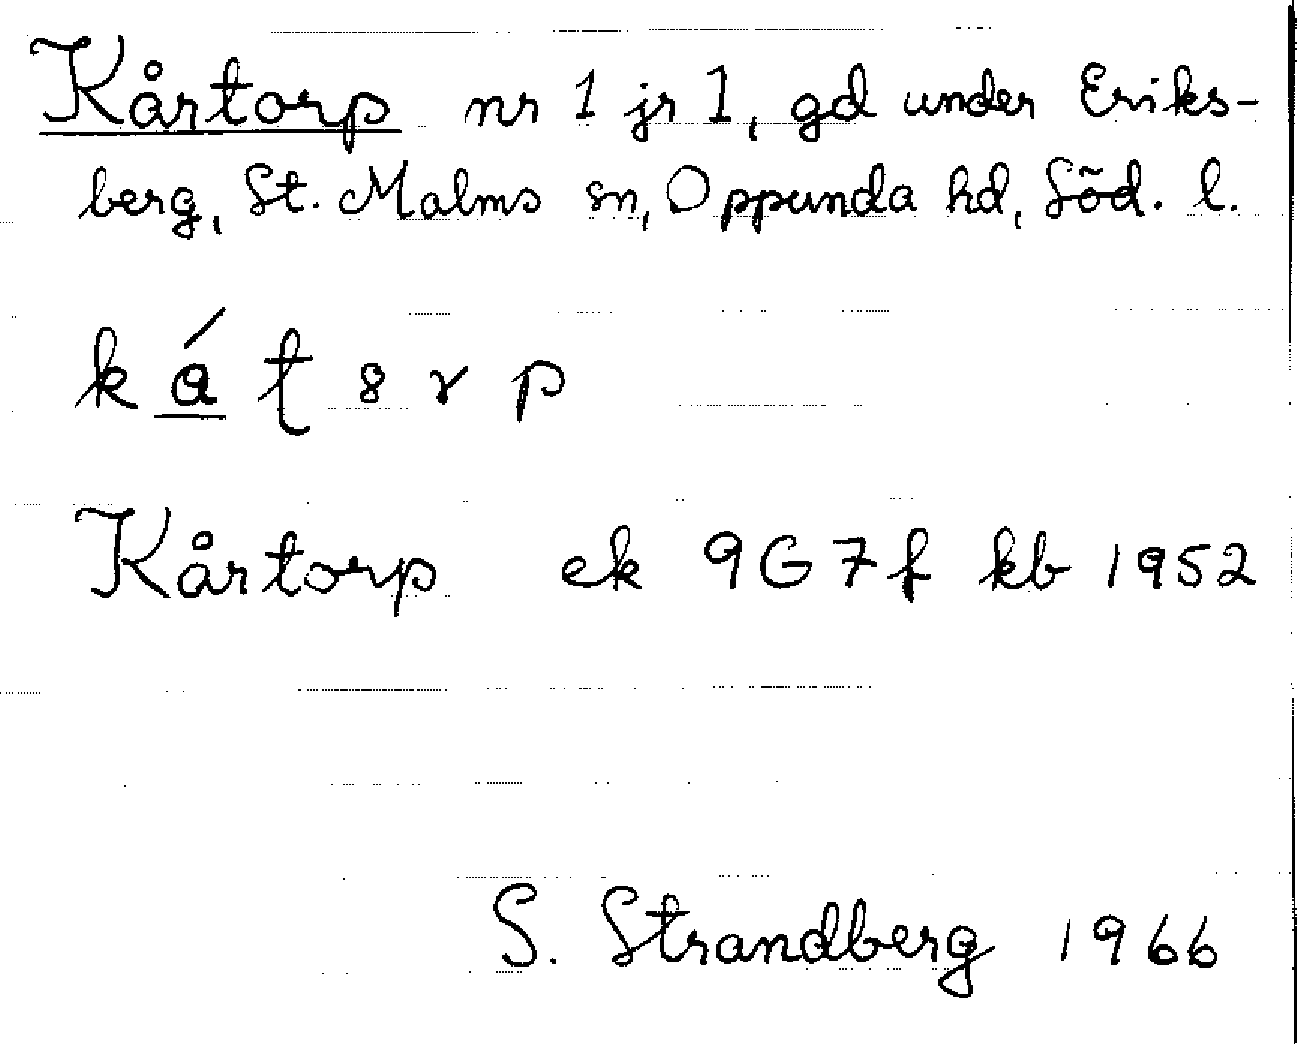 Kårtorp nr 1 jr 1, gd under Eriks-
berg, St. Malms sn, Oppunda hd, Söd. l.
Kårtorp ek 9G7f kb 1952
S. Strandberg 1966